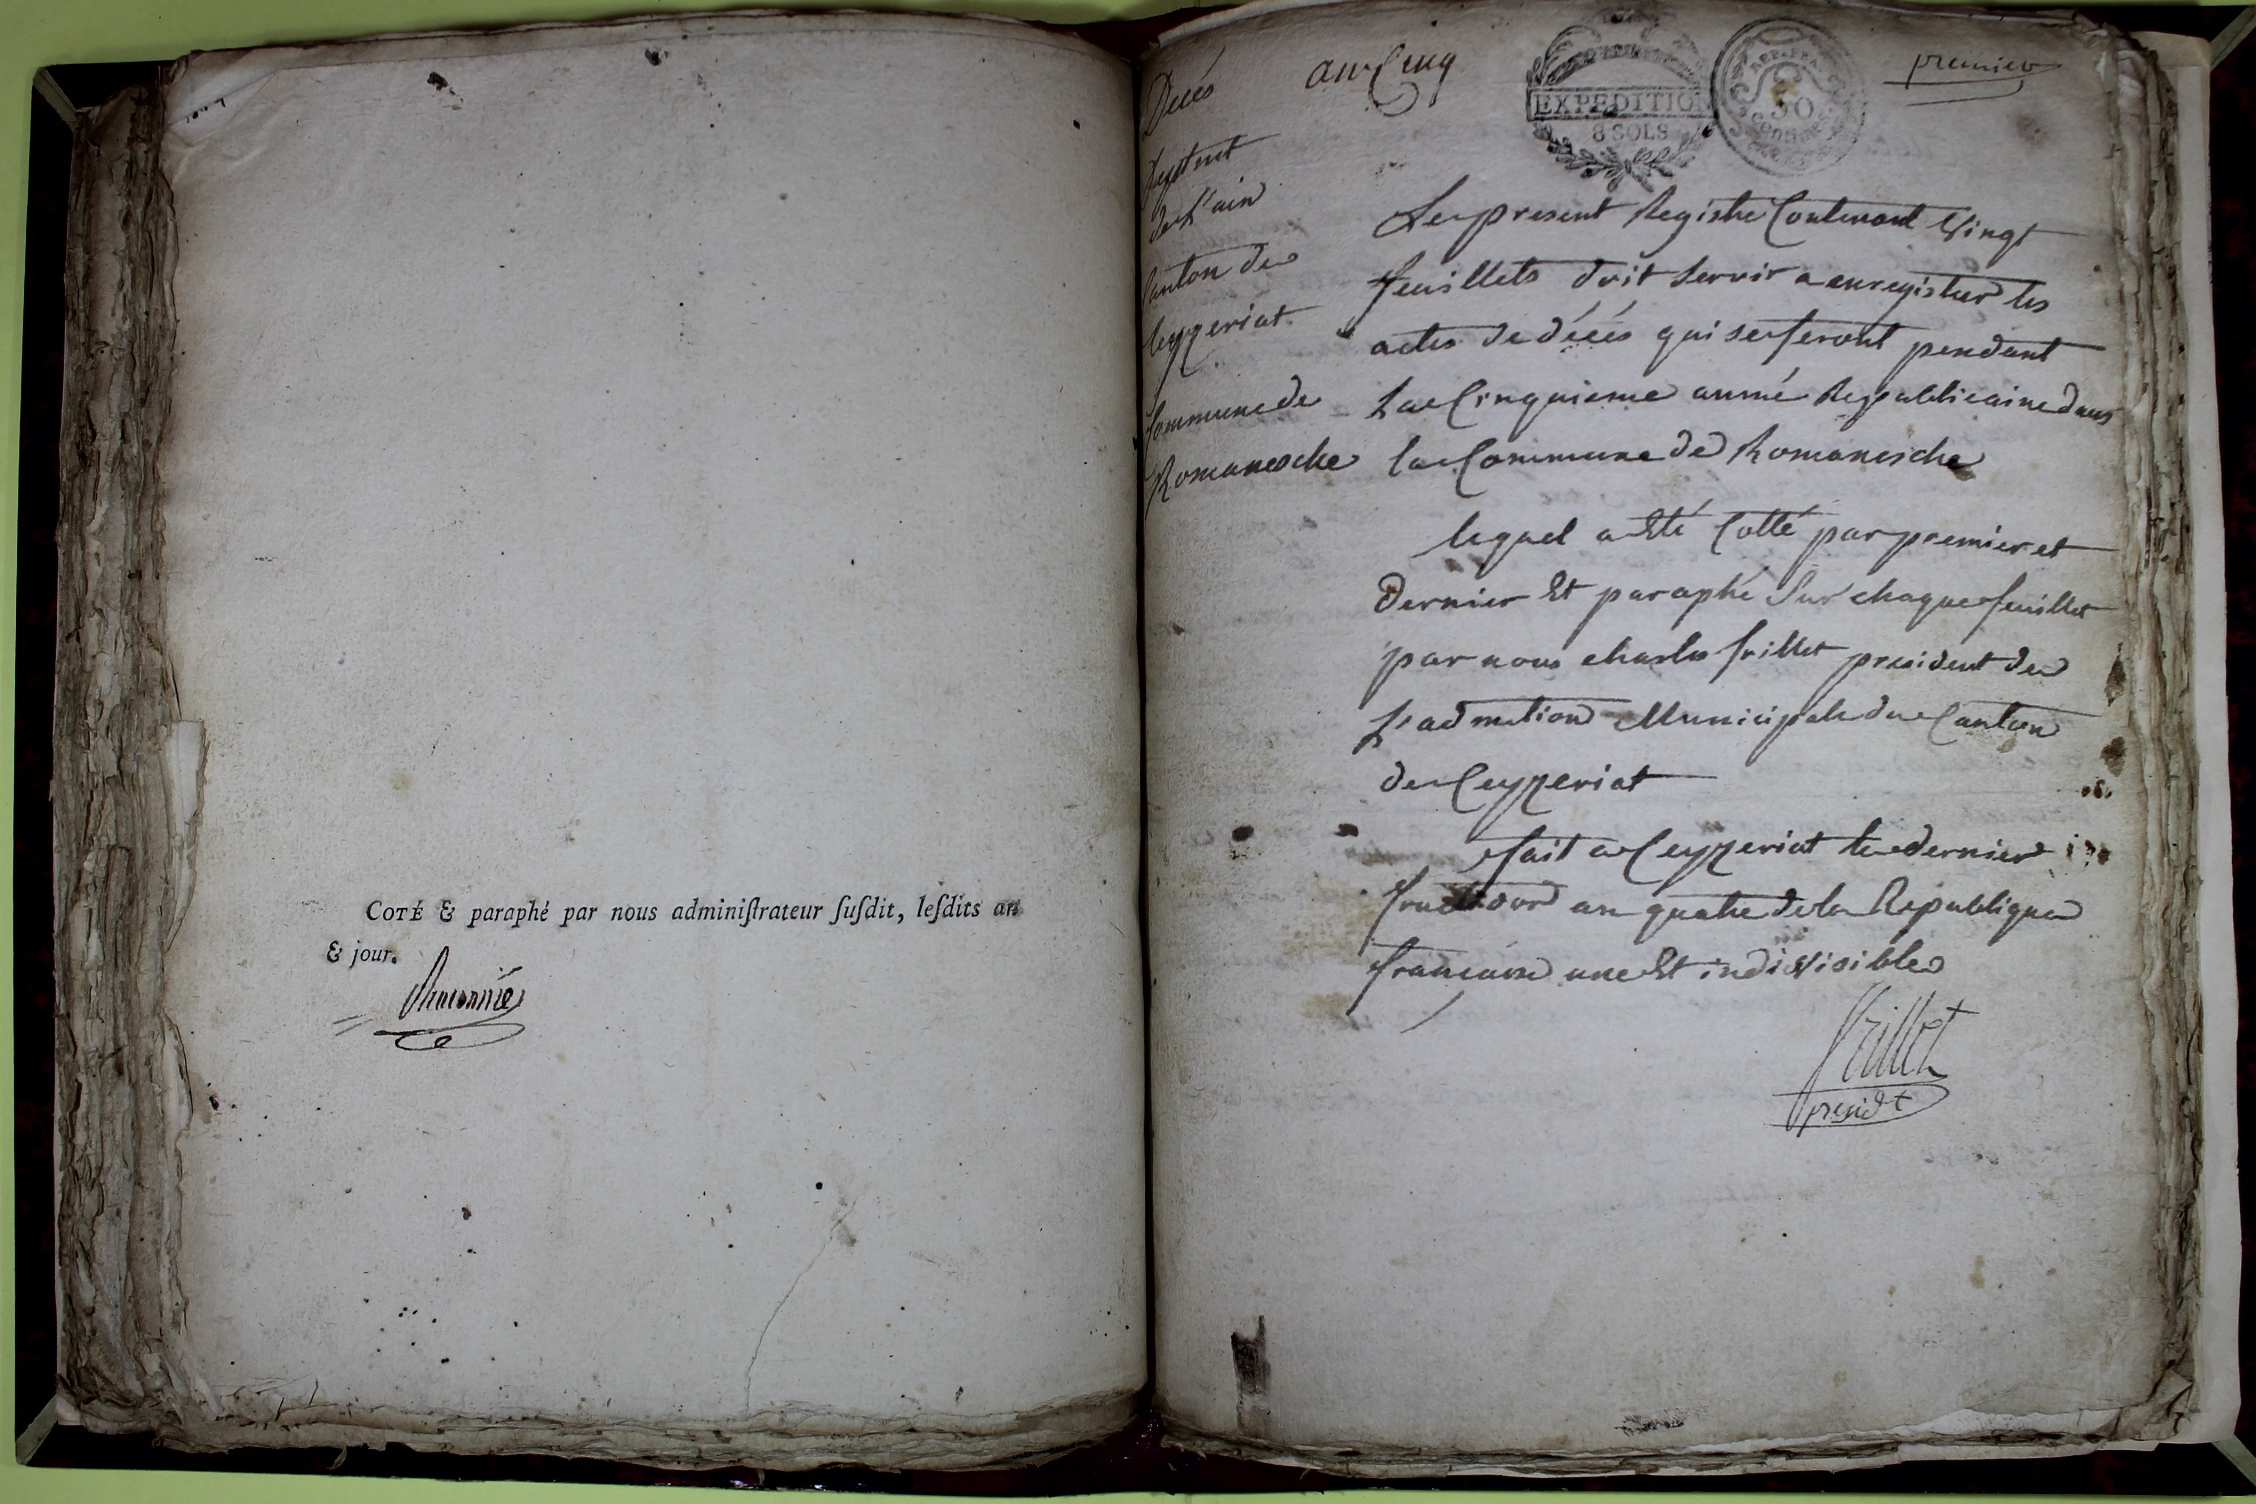 COTÉ & paraphé par nous adminiſtrateur ſuſdit, leſdits an
& jour.
Décés
an Cinq
EXPEDITION
8 SOLS
50
CENTIMES
premier
Deptmt
de L'ain
Canton de
Ceyzeriat
Commune de
Romanesche
Le present Registre Contenant Vingt
feuillets doit servir a enregistrer les
actes de décés qui se feront pendant
La Cinquieme année Republicaine dans
la Commune de Romanesche
lequel a Eté Cotté par premier et
dernier Et paraphé Sur chaque feuillet
par nous charles frillet president de
L'admtion Municipale du Canton
de Ceyzeriat
fait a Ceyzeriat le dernier
fructidor an quatre de la Republique
francaise une Et indivisible
frillet
presidt